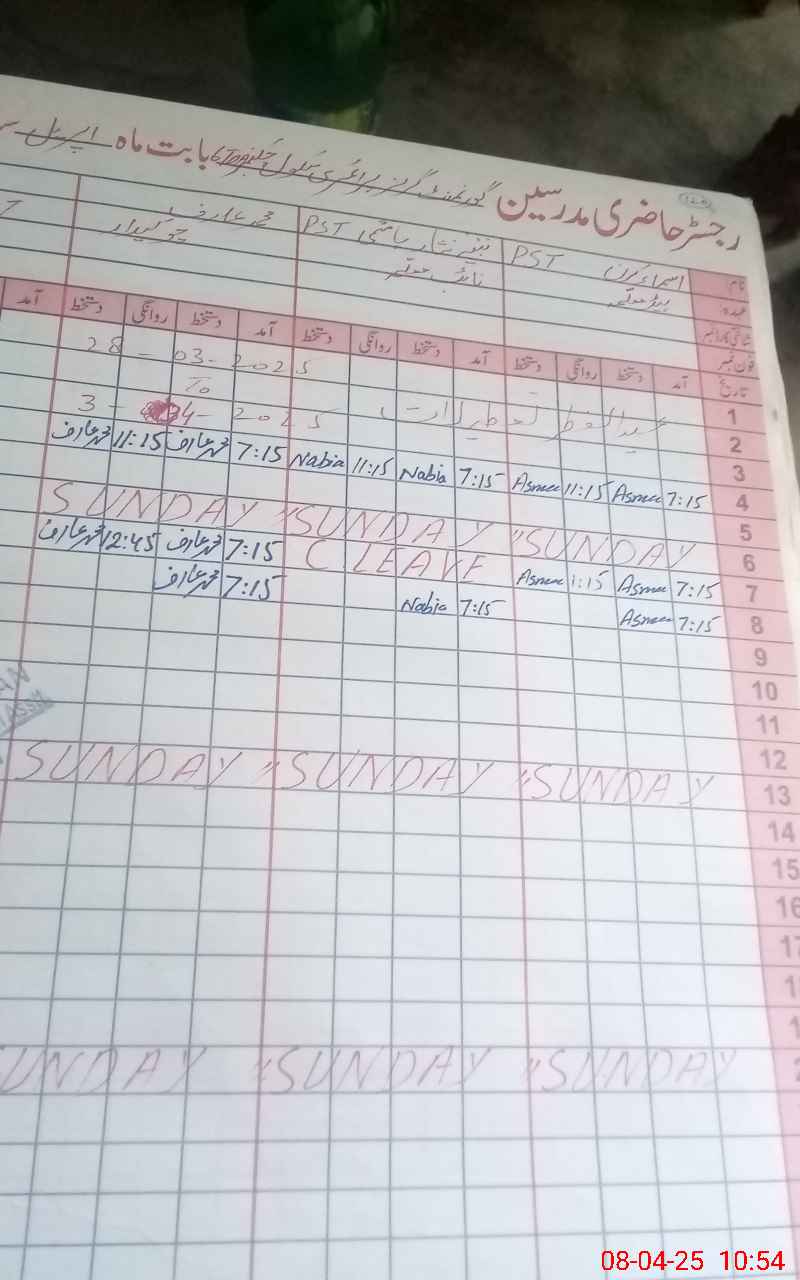 رجسٹر حاضری مدرسین گورنمنٹ گرلز پرائمری سکول بابت ماہ اپریل
نام اسماء کرن PST نبیہ نثار ہاشمی PST محمد عارف
عہدہ ہیڈ معلمہ نائب معلمہ چوکیدار
شناختی کارڈ نمبر
فون نمبر
تاریخ آمد دستخط روانگی دستخط آمد دستخط روانگی دستخط آمد دستخط روانگی دستخط آمد
1 28-03-2025
2 To
3 عید الفطر تعطیلات 3-4-2025
4 7:15 Asma 11:15 Asma 7:15 Nabia 11:15 Nabia 7:15 محمد عارف 11:15 محمد عارف
5
6 SUNDAY " SUNDAY " SUNDAY
7 7:15 Asma 1:15 Asma C LEAVE 7:15 محمد عارف 12:45 محمد عارف
8 7:15 Asma 7:15 Nabia 7:15 محمد عارف
9
10
11
12
13 SUNDAY " SUNDAY " SUNDAY
14
15
16
17
SUNDAY " SUNDAY " SUNDAY
08-04-25 10:54